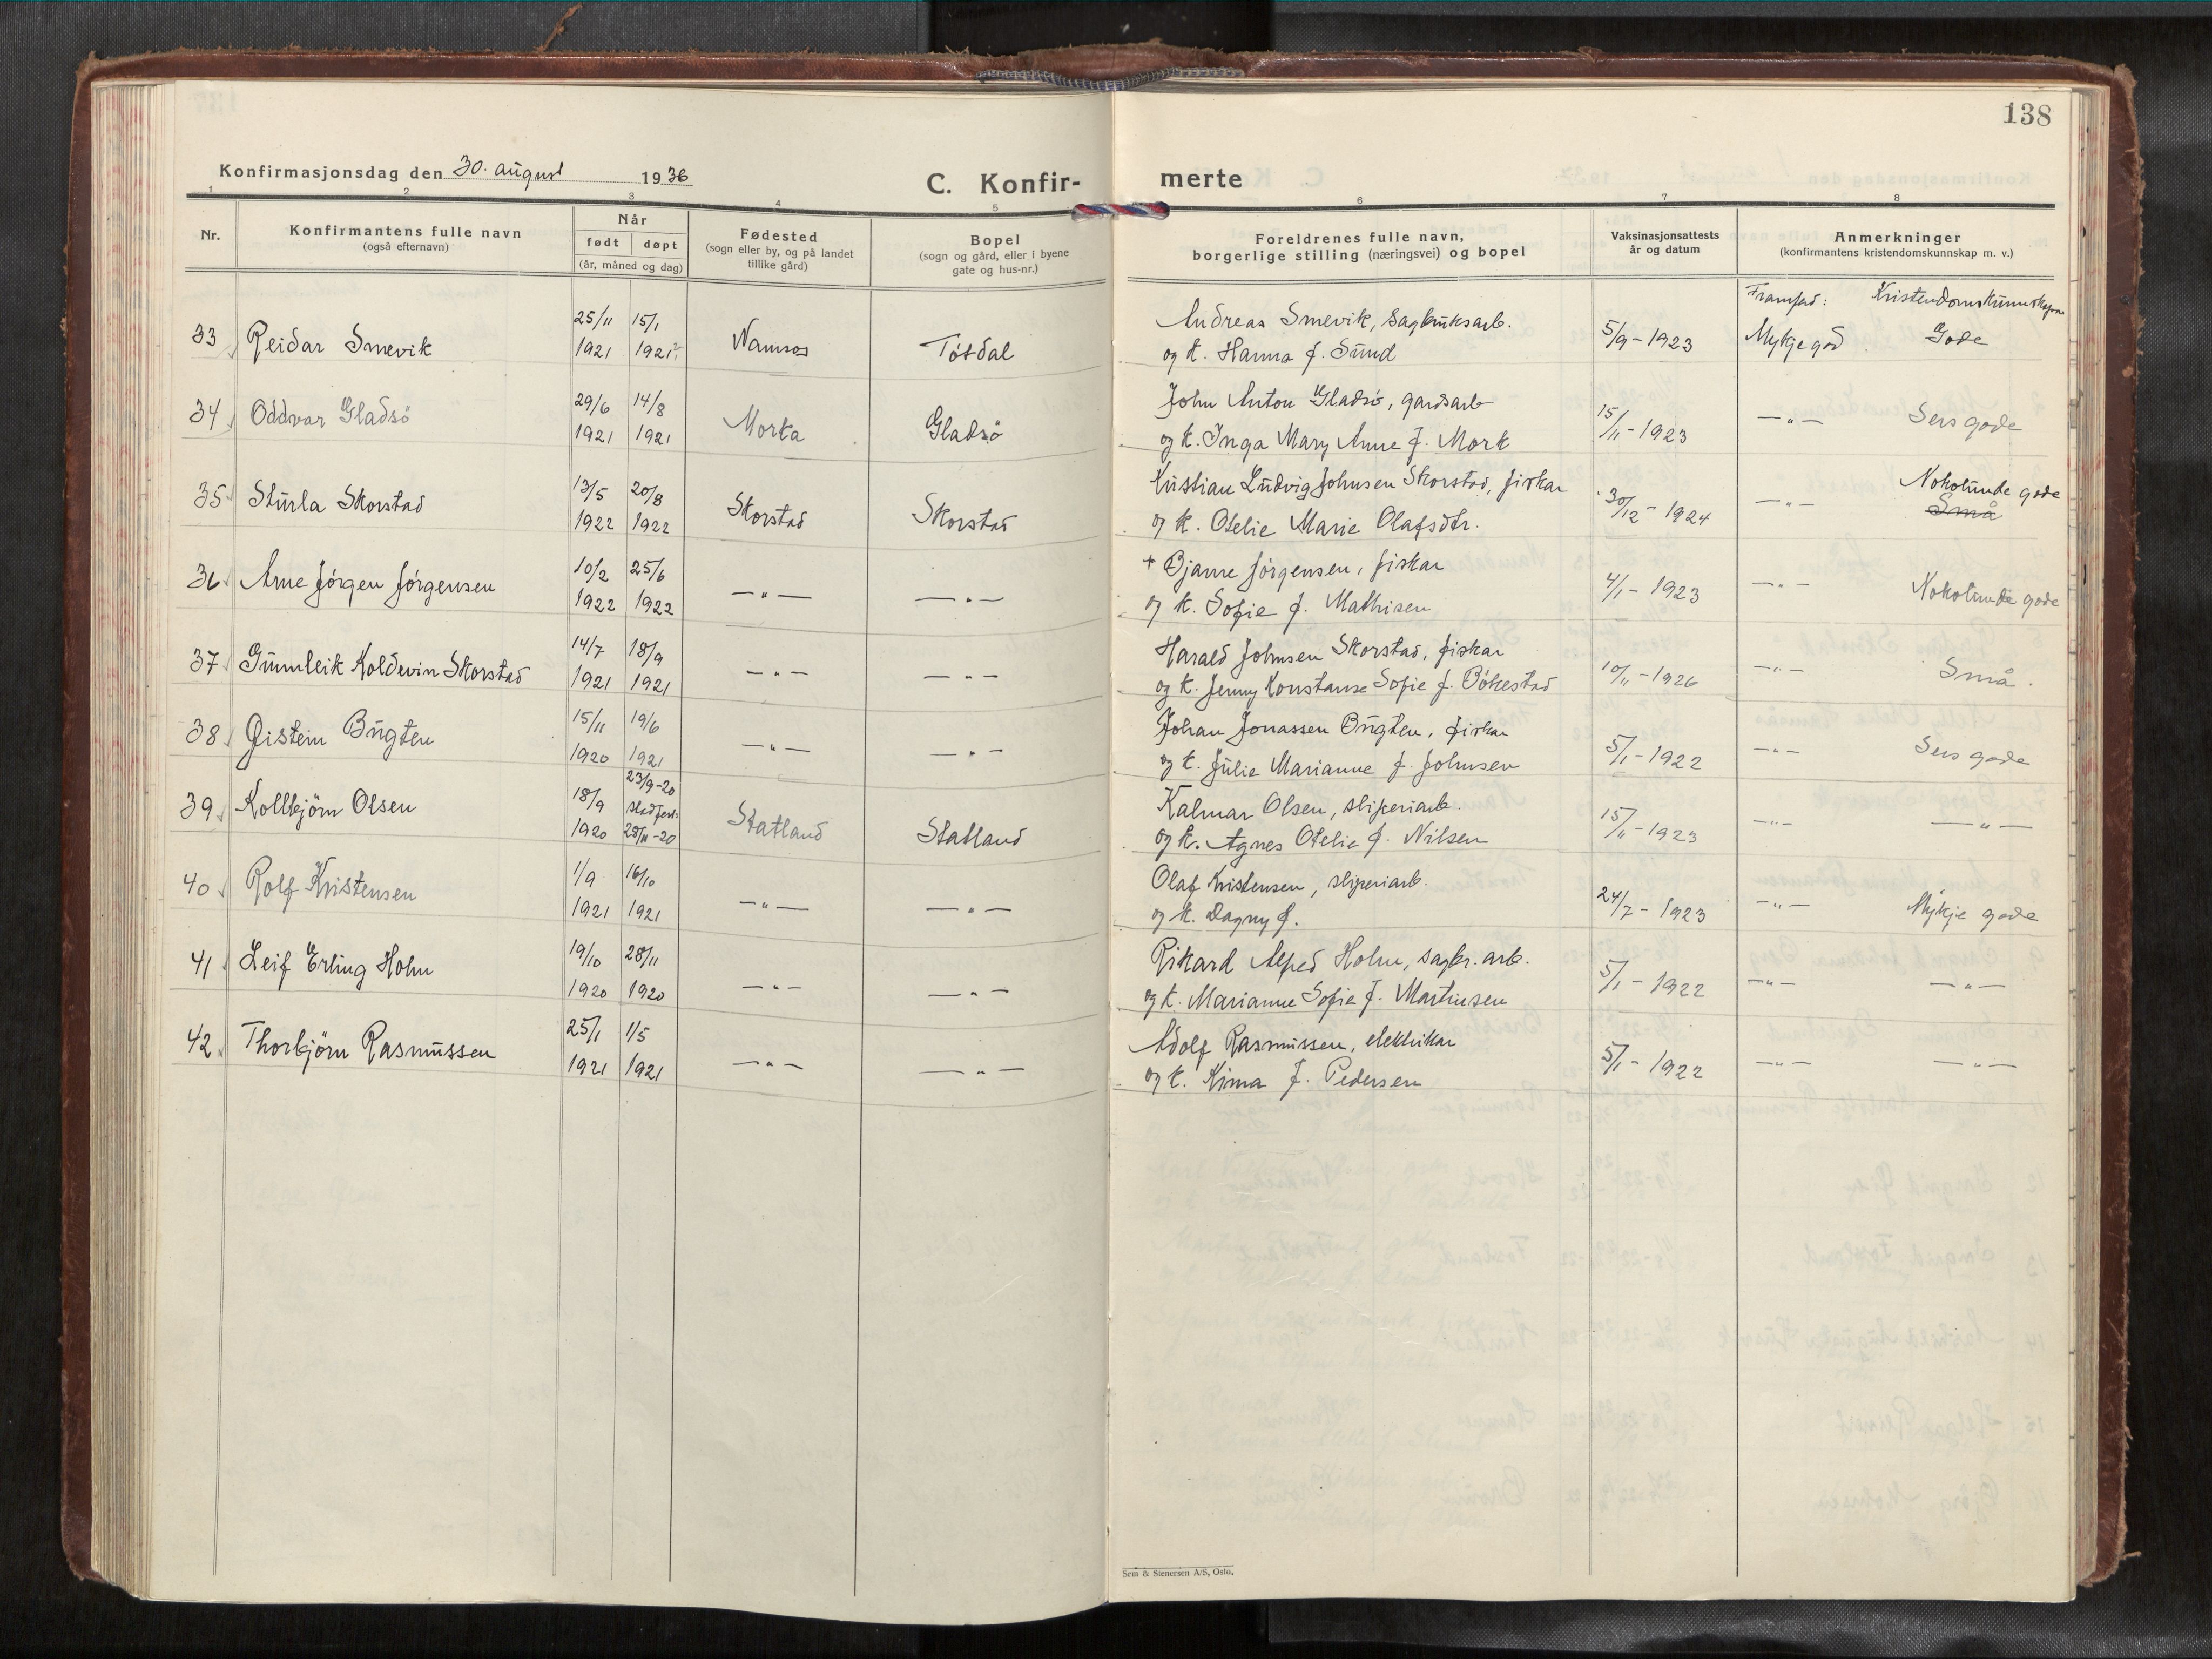 138
Konfirmasjonsdag den 30. august 1936
C. Konfir-
merte
1 2 3 4 5 6 7 8
Nr.
Konfirmantens fulle navn
(også efternavn)
Når
født døpt
(år, måned og dag)
Fødested
(sogn eller by, og på landet
tillike gård)
Bopel
(sogn og gård, eller i byene
gate og hus-nr.)
Foreldrenes fulle navn,
borgerlige stilling (næringsvei) og bopel
Vaksinasjonsattests
år og datum
Anmerkninger
(konfirmantens kristendomskunnskap m. v.)
Framferd: Kristendomskunnskapen
25/11 15/1 Andreas Smevik, sagbruksarb.
33 Reidar Smevik 1921 1921 Namsos Tøtdal og k. Hanna f. Sund 5/9-1923 Mykje god Gode
29/6 14/8 John Anton Gladsö, gardsarb
34 Oddvar Gladsö 1921 1921 Morka Gladsö og k. Inga Mary Anne f. Mork 15/11-1923 -"- Sers gode
13/5 20/8 Kristian Ludvig Johnsen Skorstad, fiskar Nokolunde gode
35 Sturla Skorstad 1922 1922 Skorstad Skorstad og k. Otelie Marie Olafsdtr. 30/12-1924 -"- Små
10/2 25/6 + Bjarne Jörgensen, fiskar
36 Arne Jörgen Jörgensen 1922 1922 -"- -"- og k. Sofie f. Mathisen 4/1-1923 -"- Nokolunde gode
14/7 18/9 Harald Johnsen Skorstad, fiskar
37 Gunnleik Koldevin Skorstad 1921 1921 -"- -"- og k. Jenny Konstanse Sofie f. Bökestad 10/11-1926 -"- Små.
15/11 19/6 Johan Jonassen Bugten, fiskar
38 Øistein Bugten 1920 1921 -"- -"- og k. Julie Marianne f. Johnsen 5/1-1922 -"- Sers gode
18/9 23/9-20 stadfest: Kalmar Olsen, sliperiarb.
39 Kollbjörn Olsen 1920 28/11-20 Statland Statland og k. Agnes Otelie f. Nilsen 15/11-1923 -"- -"-
1/9 16/10 Olaf Kristensen, sliperiarb.
40 Rolf Kristensen 1921 1921 -"- -"- og k. Dagny f. 24/7-1923 -"- Mykje gode
19/10 28/11 Rikard Alfred Holm, sagbr. arb.
41 Leif Erling Holm 1920 1920 -"- -"- og k. Marianne Sofie f. Martinsen 5/1-1922 -"- -"-
25/1 1/5 Adolf Rasmussen, elektrikar
42 Thorbjörn Rasmussen 1921 1921 -"- -"- og k. Kima f. Pedersen 5/1-1922 -"- -"-
Sem & Stenersen A/S, Oslo.